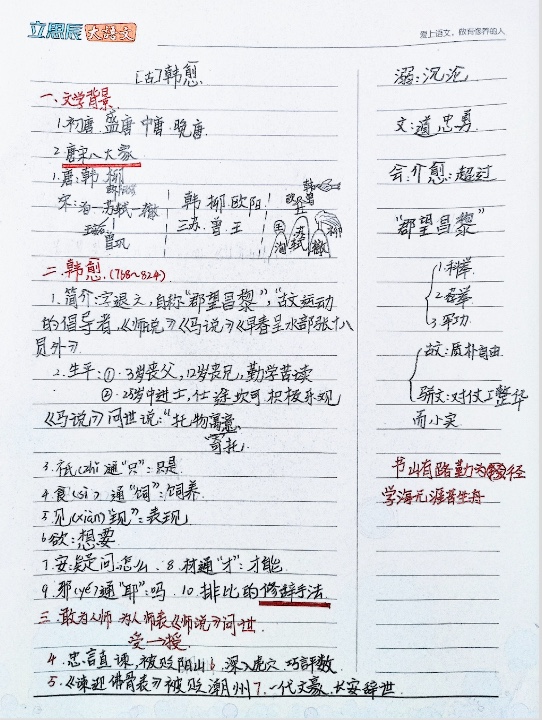 立思辰大语文
爱上语文，做有修养的人
[古]韩愈
一、文学背景
1.初唐 盛唐 中唐 晚唐
2.唐宋八大家
1.唐:韩 柳
宋:苏轼 辙
曾巩
韩 柳 欧阳
三苏 曾 王
二、韩愈.(768~824)
1.简介:字退之,自称"郡望昌黎","古文运动
的倡导者,《师说》《马说》《早春呈水部张十八
员外》
2.生平:①.3岁丧父,12岁丧兄,勤学苦读
②.25岁中进士,仕途坎坷 积极乐观
《马说》问世说:"托物寓意
寄托
3.祇(zhǐ)通"只":只是
4.食(sì)通"饲":饲养
5.见(xiàn)"现":表现
6欲:想要
7.安:疑问怎么.8.材通"才":才能.
9.邪(yé)通"耶":吗.10.排比的修辞手法
三.敢为人师 为人师表《师说》问世
受→授
4.忠言直谏,被贬阳山 6.深入虎穴 巧
5.《谏迎佛骨表》被贬潮州 7.一代文豪,长安辞世
溺:沉沦
文:道,忠,勇
会:介愈:超过
"郡望昌黎"
1.科举
2.
3.军功
古文:质朴自由
骈文:对仗工整华
而小实
书山有路勤为径
学海无涯苦作舟